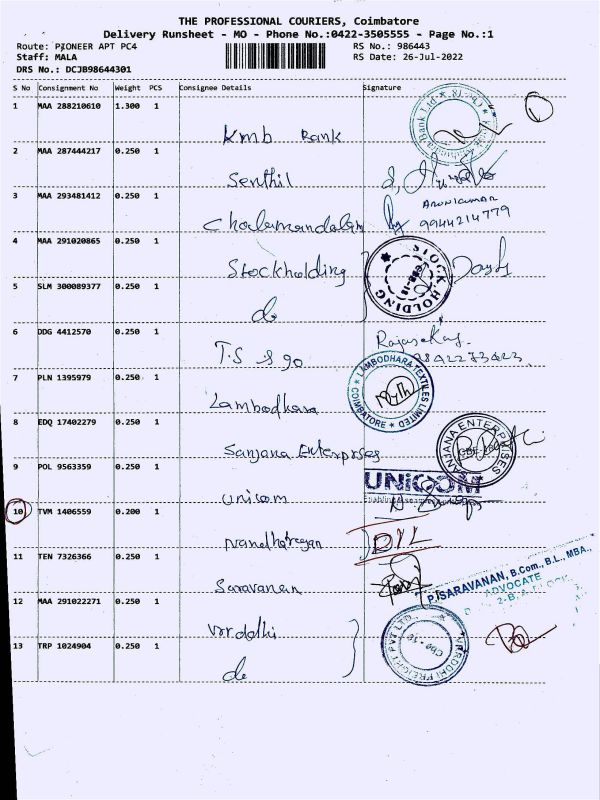 THE PROFESSIONAL COURIERS, Coimbatore
Delivery Runsheet - MO - Phone No.:0422-3505555 - Page No.:1
Route: PIONEER APT PC4
RS No.: 986443
Staff: MALA
RS Date: 26-Jul-2022
DRS No.: DCJB98644301
S No Consignment No Weight PCS Consignee Details Signature
1 MAA 288210610 1.300 1 Kmb Bank
2 MAA 287444217 0.250 1 Senthil
3 MAA 293481412 0.250 1 Cholamandalam Arunkumar
9944214779
4 MAA 291020865 0.250 1 Stockholding STOCK HOLDING
5 SLM 300089377 0.250 1 do
6 DDG 4412570 0.250 1 T.S Rajasekar
7 PLN 1395979 0.250 1 Lambodhara LAMBODHARA TEXTILES LIMITED COIMBATORE
8 EDQ 17402279 0.250 1 Sanjana Enterprses SANJANA ENTERPRISES
9 POL 9563359 0.250 1 Unicom UNICOM
10 TVM 1406559 0.200 1
11 TEN 7326366 0.250 1 Saravanan P. SARAVANAN, B.Com., B.L., MBA.,
ADVOCATE
12 MAA 291022271 0.250 1 Vrrddhi VRRDDHI FREIGHT PVT LTD.,
Cbe-18
13 TRP 1024904 0.250 1 do